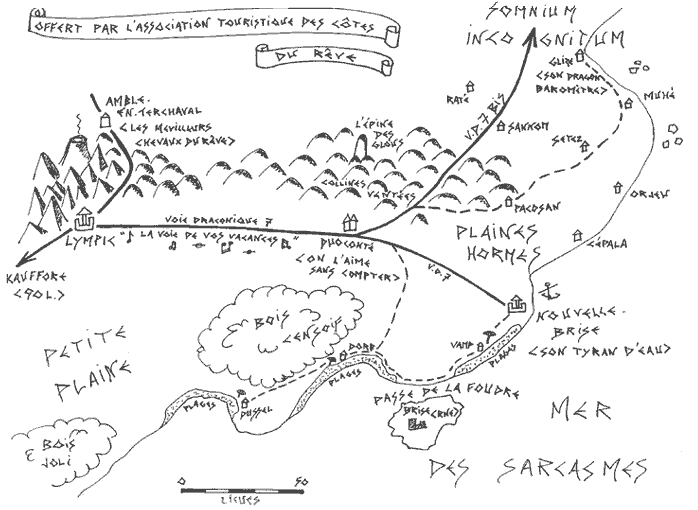 OFFERT PAR L'ASSOCIATION TOURISTIQUE DES CÔTES
DU RÊVE
SOMNIUM
INCOGNITUM
GLIX
<SON DRAGON
BAROMÈTRE>
MUHÉ
RATÉ
V.D. 7 BIS
SANKOM
SETEZ
ORJEU
PACOSAN
CÉPALA
AMBLE-
EN-TERCHAVAL
<LES MEILLEURS
CHEVAUX DU RÊVE>
L'ÉPINE
DES
GLOUS
COLLINES
VENTÉES
PLAINES
HORMES
VOIE DRACONIQUE 7
LYMPIC
"LA VOIE DE VOS VACANCES"
DUOCONTE
<ON L'AIME
SANS COMPTER>
V.D.7
KAUFFORE
<90 L.>
NOUVELLE-
BRISE
<SON TYRAN D'EAU>
BOIS
CENSOIF
PETITE
PLAINE
DORD
VAMP
PLAGES
PLAGES
PLAGES
DUSSEL
PASSE DE LA FOUDRE
BOIS
JOLI
MER
DES SARCASMES
0 50
LIEUES